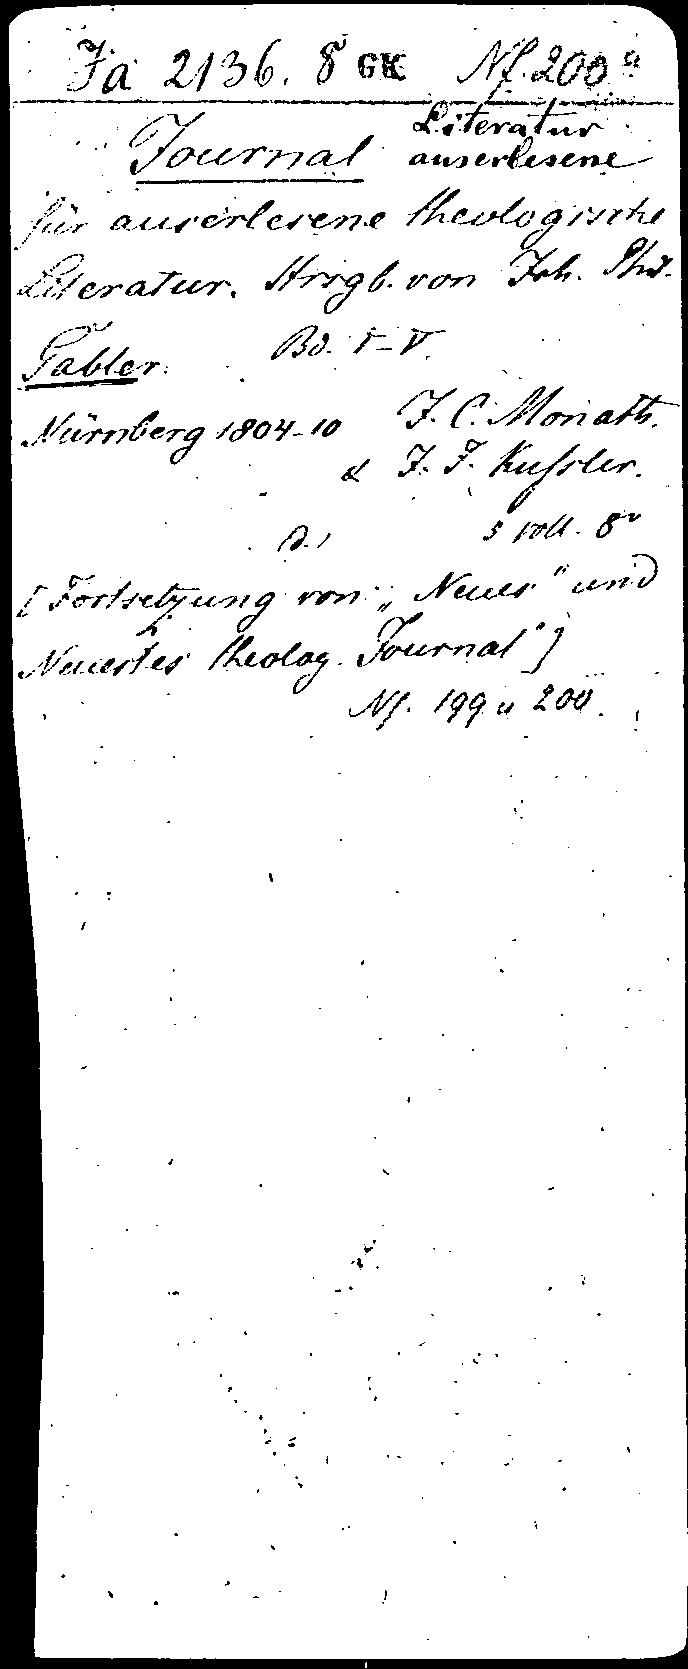 Ja 2136. 8 GK Nf. 200 a
Literatur
Journal auserlesene
für auserlesene theologische
Literatur. Hrsgb. von Joh. Phil.
Gabler. Bd. I-V.
Nürnberg 1804-10 J. C. Monath.
& J. F. Kußler.
5 voll. 8°
[Fortsetzung von „Neues" und
Neuestes theolog. Journal"]
Nf. 199 u 200.